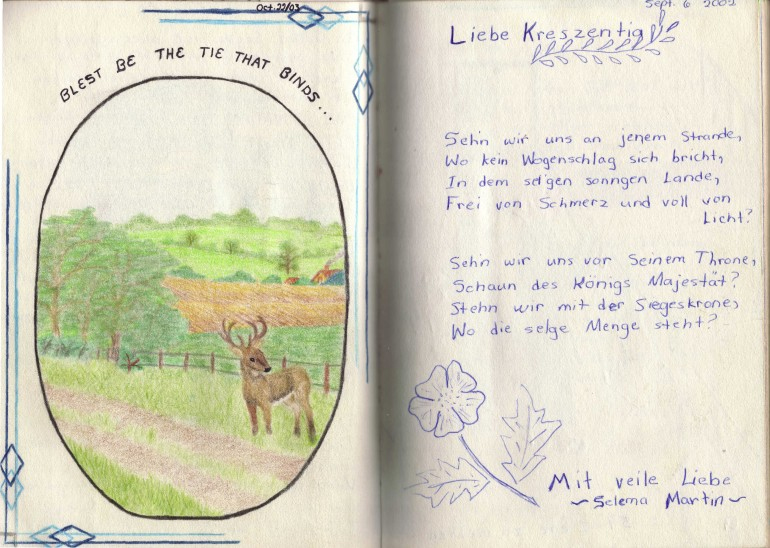 Oct. 22/03
BLEST BE THE TIE THAT BINDS...
Sept. 6 2002
Liebe Kreszentia
Sehn wir uns an jenem Strande,
Wo kein Wogenschlag sich bricht,
In dem sel'gen sonngen Lande,
Frei von Schmerz und voll von
Licht?
Sehn wir uns vor Seinem Throne,
Schaun des Königs Majestät?
Stehn wir mit der Siegeskrone,
Wo die selge Menge steht?
Mit veile Liebe
~Selema Martin~